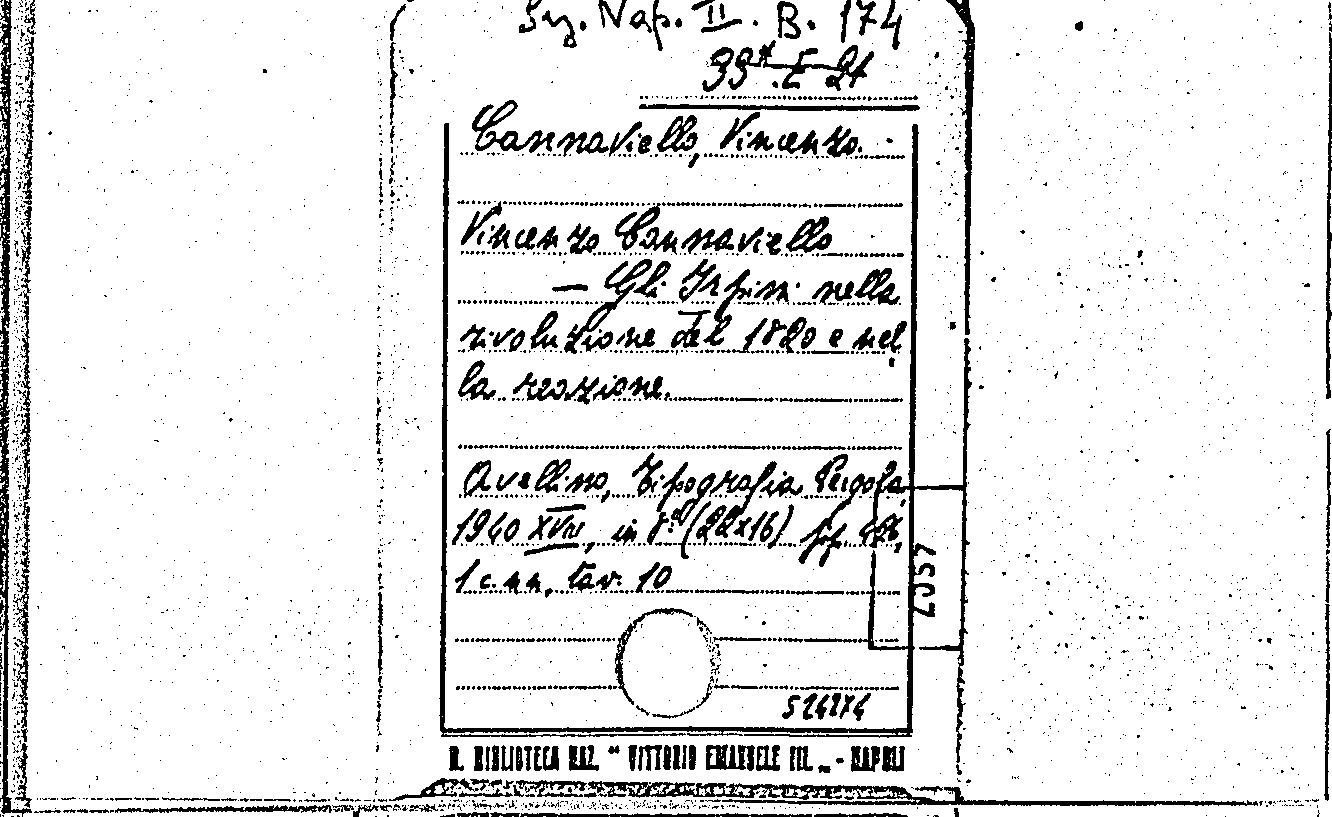 Sez. Nap. II. B. 174
99*.E 21
Cannaviello, Vincenzo.
Vincenzo Cannaviello
— Gli Irpini nella
rivoluzione del 1820 e nel
la reazione.
Avellino, Tipografia Pergola,
1940 XVIII, in 8º (22x16) pp.
1 c. nn, tav. 10
524274
R. BIBLIOTECA NAZ. " VITTORIO EMANUELE III. „ - NAPOLI